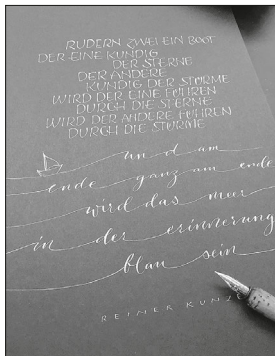 RUDERN ZWEI EIN BOOT
DER EINE KUNDIG
DER STERNE
DER ANDERE
KUNDIG DER STÜRME
WIRD DER EINE FÜHREN
DURCH DIE STERNE
WIRD DER ANDERE FÜHREN
DURCH DIE STÜRME
und am
ende ganz am ende
wird das meer
in der erinnerung
blau sein
REINER KUNZE